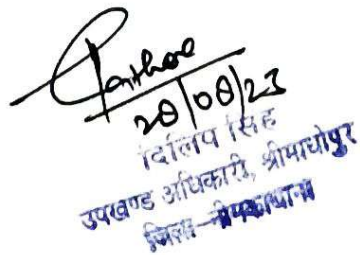 28/08/23
दिलिप सिंह
उपखण्ड अधिकारी, श्रीमाधोपुर
जिला-नीमकाथाना